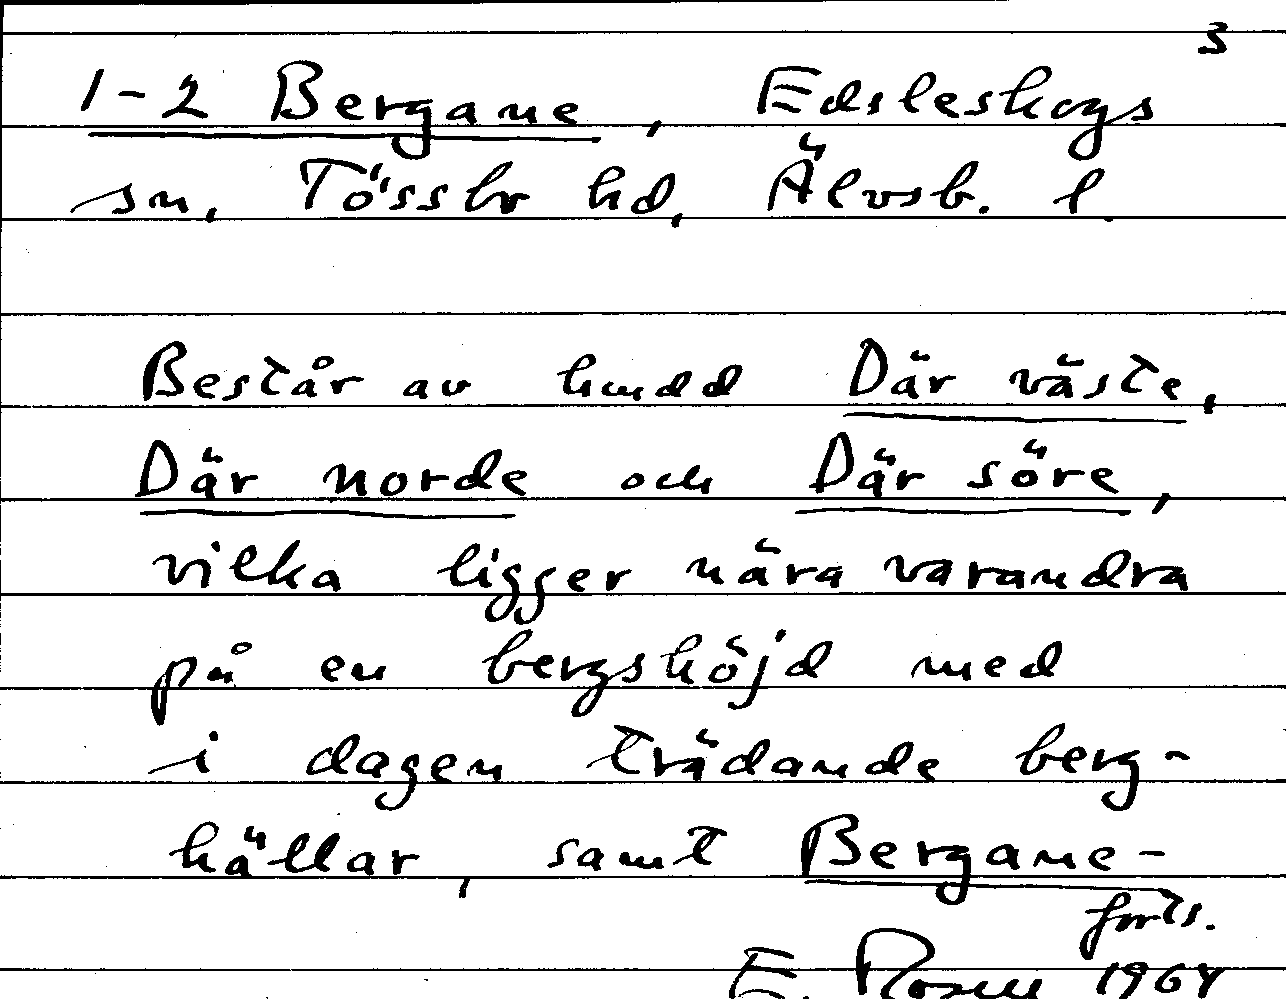 3
1-2 Bergane, Edsleskogs
sn, Tössbr hd, Älvsb. l.
Består av hmdd Där väste,
Där norde och Där söre,
vilka ligger nära varandra
på en bergshöjd med
i dagen trädande berg-
hällar, samt Bergane-
forts.
E. Rosell 1964